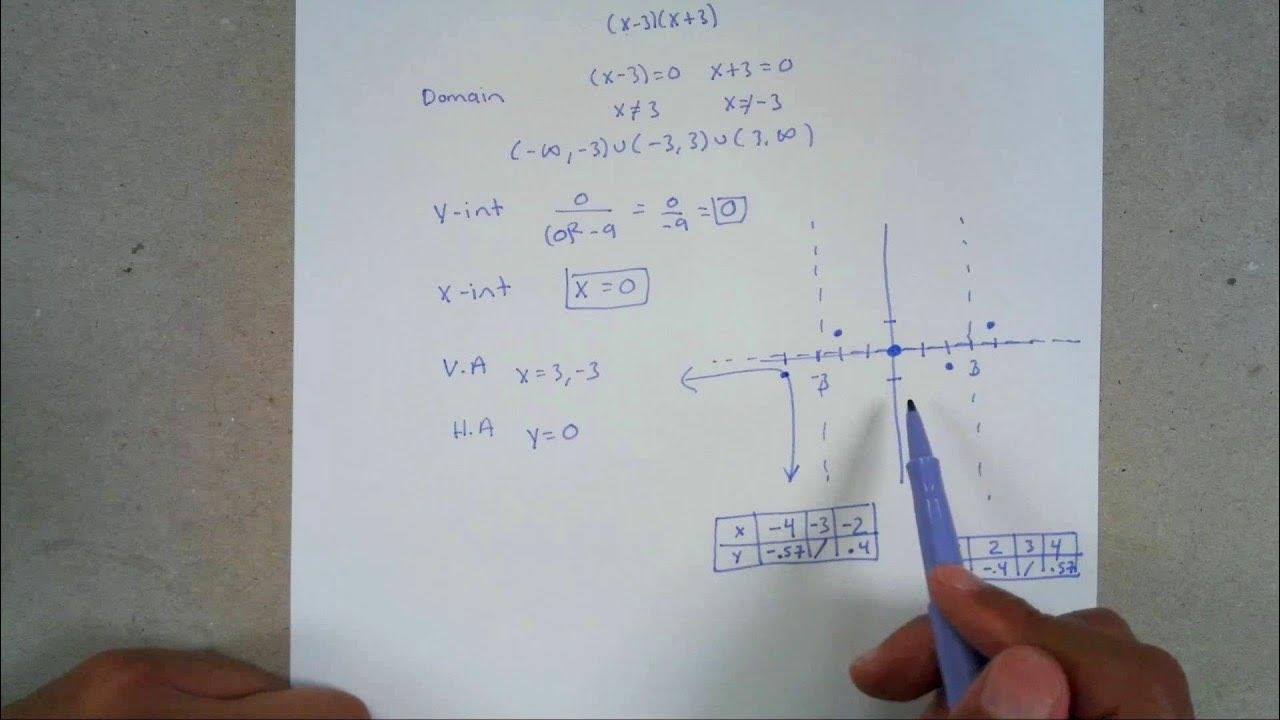 (x-3)(x+3)
Domain (x-3)=0 x+3=0
x≠3 x≠-3
(-∞,-3)∪(-3,3)∪(3,∞)
Y-int 0/(0)²-9 = 0/-9 = 0
x-int x=0
V.A x=3,-3
H.A y=0
-3 3
x -4 -3 -2
y -.57 / .4
2 3 4
-.4 / .57